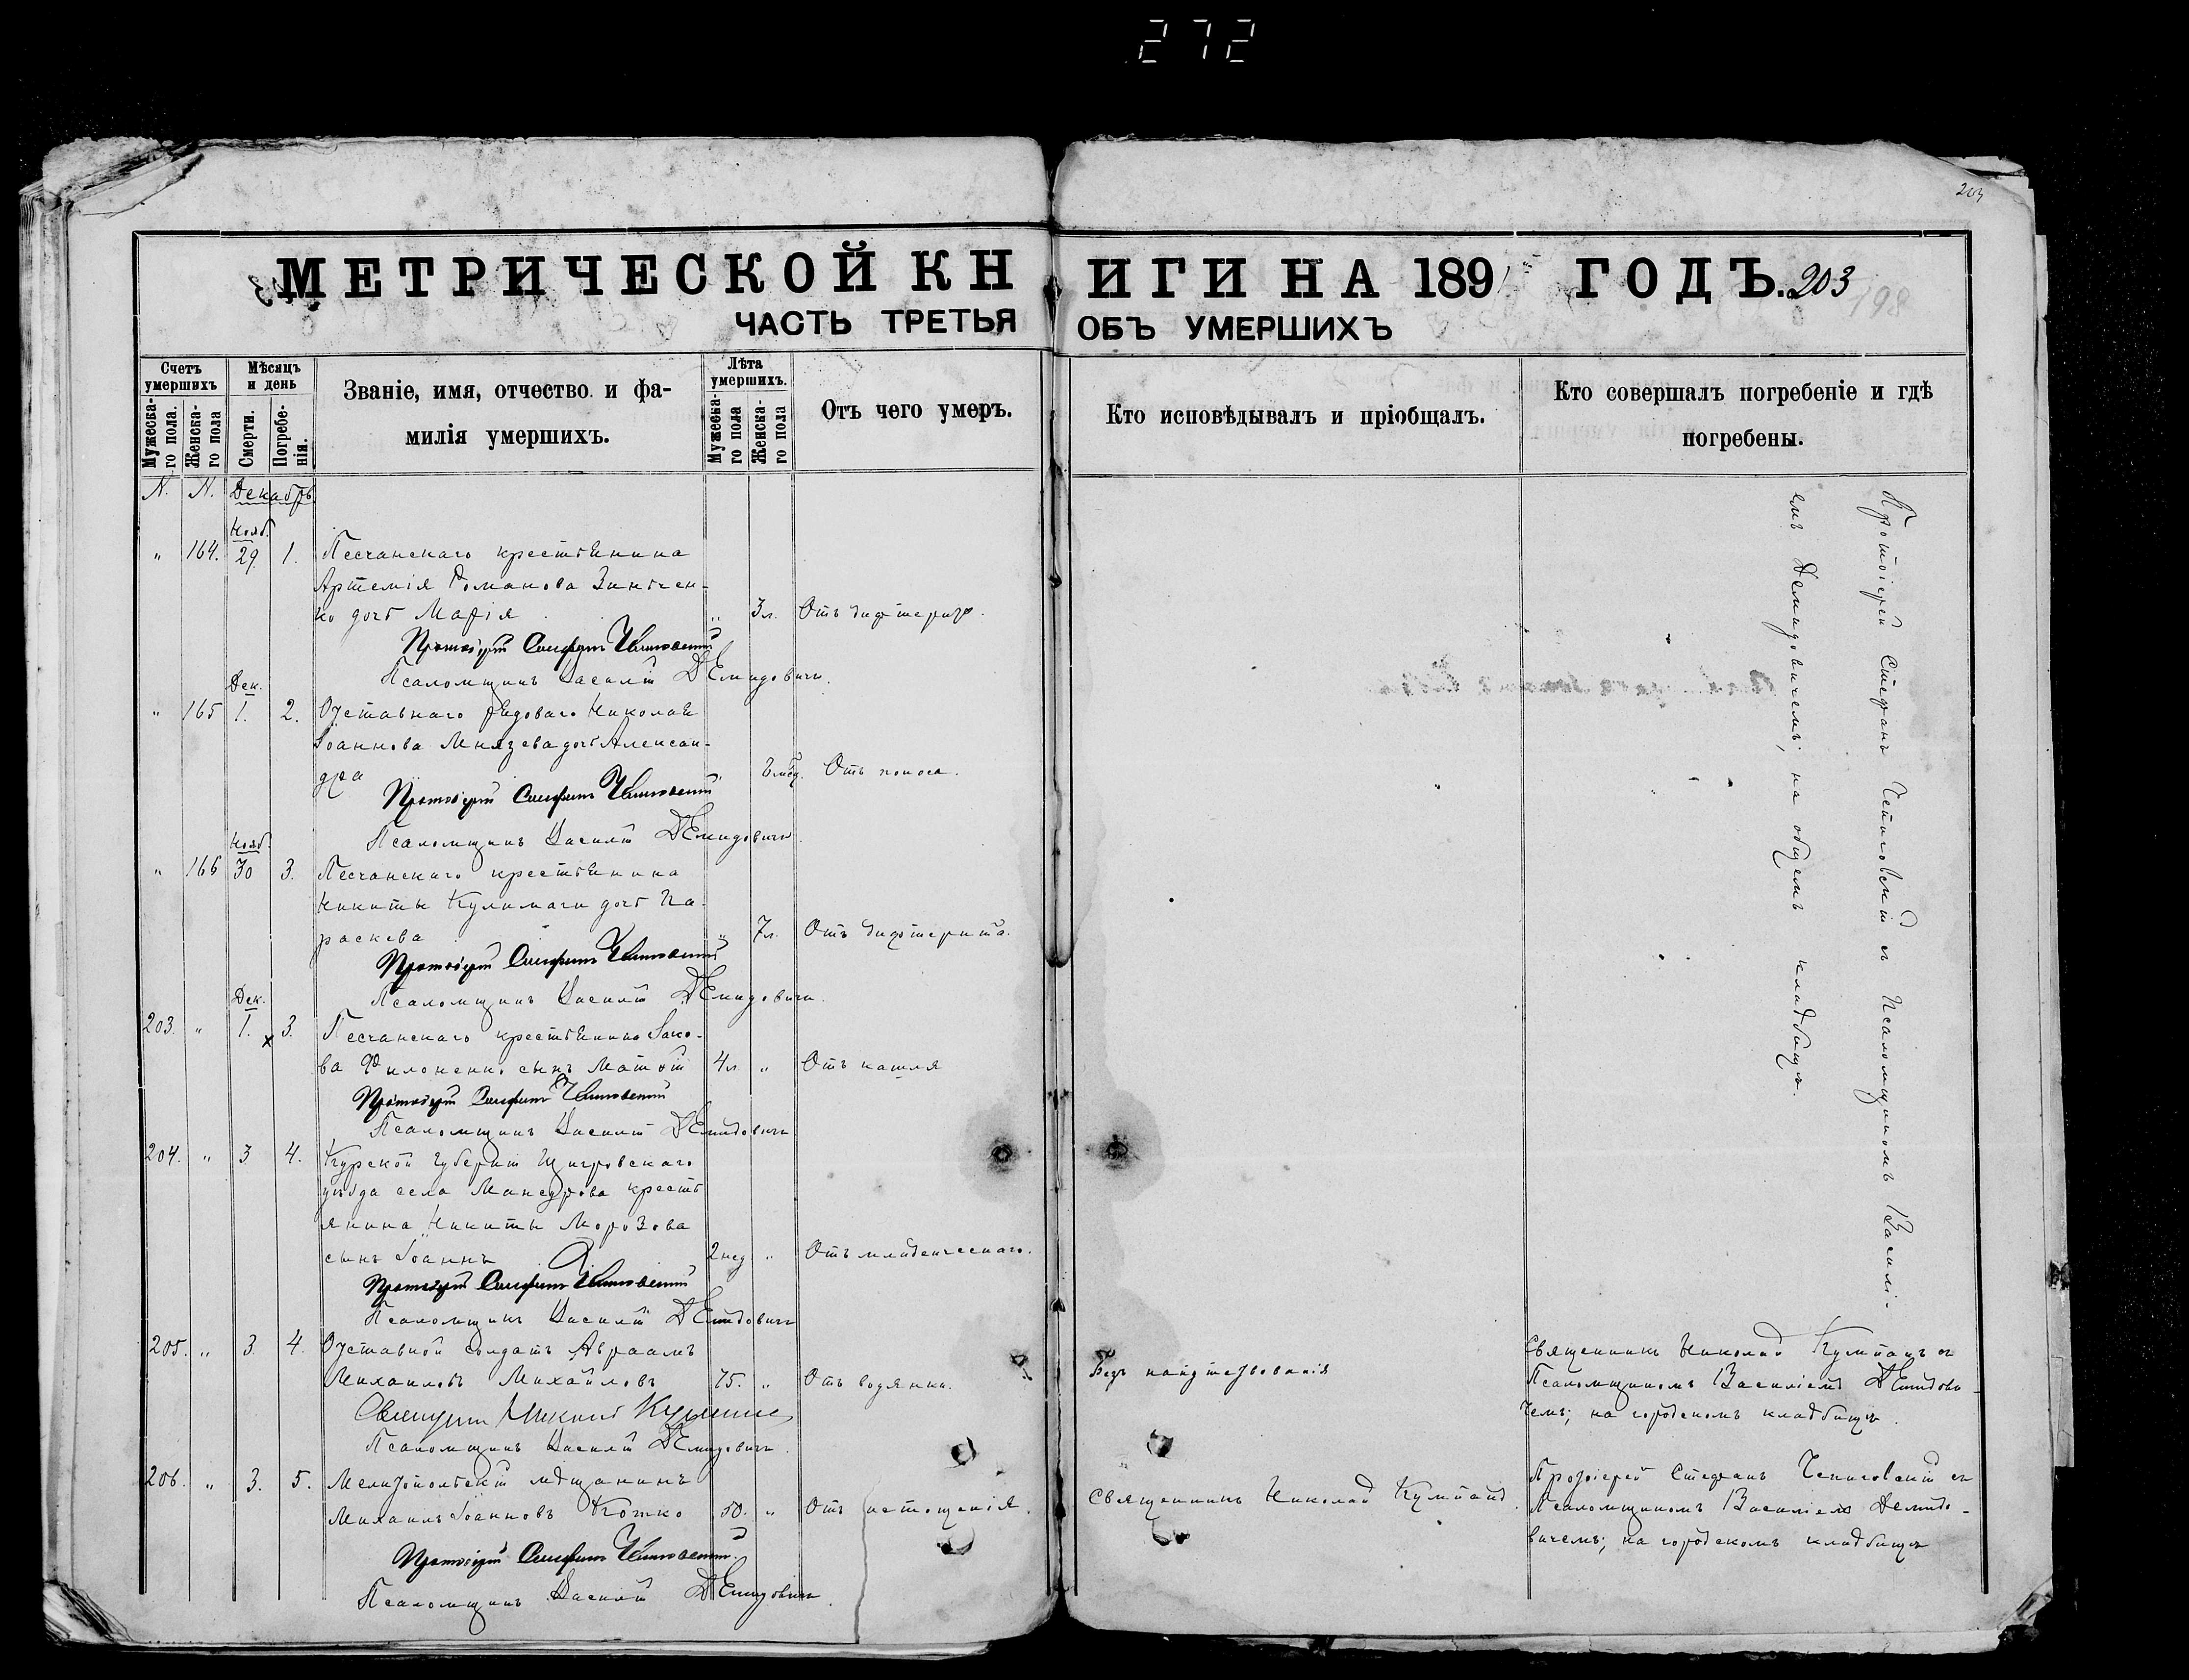 272
203
МЕТРИЧЕСКОЙ КНИГИ НА 1891 ГОДЪ. 203
198
ЧАСТЬ ТРЕТЬЯ ОБЪ УМЕРШИХЪ
Счетъ умершихъ
Мужеска-го пола.
Женска-го пола
Мѣсяцъ и день
Смерти.
Погребе-нія.
Званіе, имя, отчество и фа-
милія умершихъ.
Лѣта умершихъ.
Мужеска-го пола
Женска-го пола
Отъ чего умеръ.
Кто исповѣдывалъ и пріобщалъ.
Кто совершалъ погребеніе и гдѣ
погребены.
N. N. Декабрь
Нояб.
" 164. 29. 1. Песчанскаго крестьянина
Артемія Романова Зинчен-
ко дочь Марія " 3 л. Отъ дифтерита.
Протоіерей Стефанъ
Псаломщикъ Василій Демидовичъ.
Дек.
" 165 1. 2. Отставнаго рядоваго Николая
Іоаннова Мнязева дочь Алексан-
дра мѣс. Отъ поноса.
Протоіерей Стефанъ
Псаломщикъ Василій Демидовичъ.
Нояб.
" 166 30 3. Песчанскаго крестьянина
Никиты дочь Па-
раскева " 7 л. Отъ дифтерита.
Протоіерей Стефанъ
Псаломщикъ Василій Демидовичъ.
Дек.
203. " 1. x 3. Песчанскаго крестьянина Іако-
ва Филоненко сынъ Матѳій 4 л. " Отъ кашля
Протоіерей Стефанъ
Псаломщикъ Василій Демидовичъ
204. " 3. 4. Курской губерніи Щигровскаго
уѣзда села крестъ
янина Никиты Морозова
сынъ Іоаннъ 2 нед " Отъ младенческаго.
Протоіерей Стефанъ
Псаломщикъ Василій Демидовичъ
205. " 3. 4. Отставной солдатъ Авраамъ
Михаиловъ Михайловъ 75. " Отъ водянки.
Безъ напутствованія
Священникъ Николай Кумпанъ съ
Псаломщикомъ Василіемъ Демидови-
чемъ; на городскомъ кладбищѣ.
Священникъ Николай
Псаломщикъ Василій Демидовичъ.
206. " 3. 5. Мелитопольскій мѣщанинъ
Михаилъ Іоанновъ Кошко 50. " Отъ истощенія.
Священникъ Николай Кумпанъ.
Протоіерей Стефанъ съ
Псаломщикомъ Василіемъ Демидо-
вичемъ; на городскомъ кладбищѣ
Протоіерей Стефанъ
Псаломщикъ Василій Демидовичъ.
Протоіерей Стефанъ съ Псаломщикомъ Василі-
емъ Демидовичемъ; на общемъ кладбищѣ.